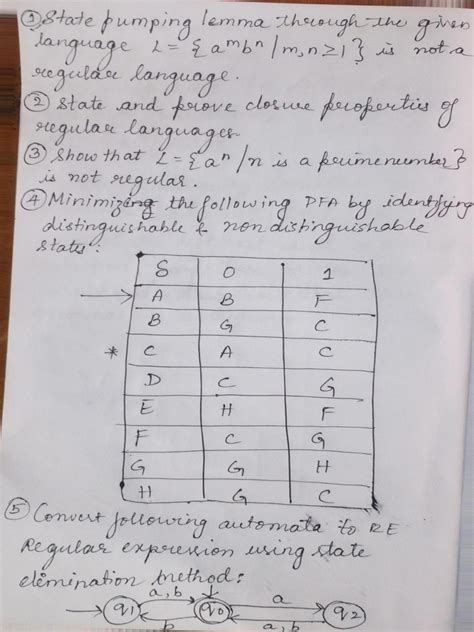 ① State pumping lemma through the given
language L = {aᵐbⁿ | m,n ≥ 1} is not a
regular language.
② State and prove closure properties of
regular languages
③ Show that L = {aⁿ / n is a prime number}
is not regular.
④ Minimizing the following DFA by identifying
distinguishable & non distinguishable
states:
δ 0 1
→ A B F
B G C
* C A C
D C G
E H F
F C G
G G H
H G C
⑤ Convert following automata to RE
Regular expression using state
elemination method:
a, b a
q1 q0 q2
b a, b